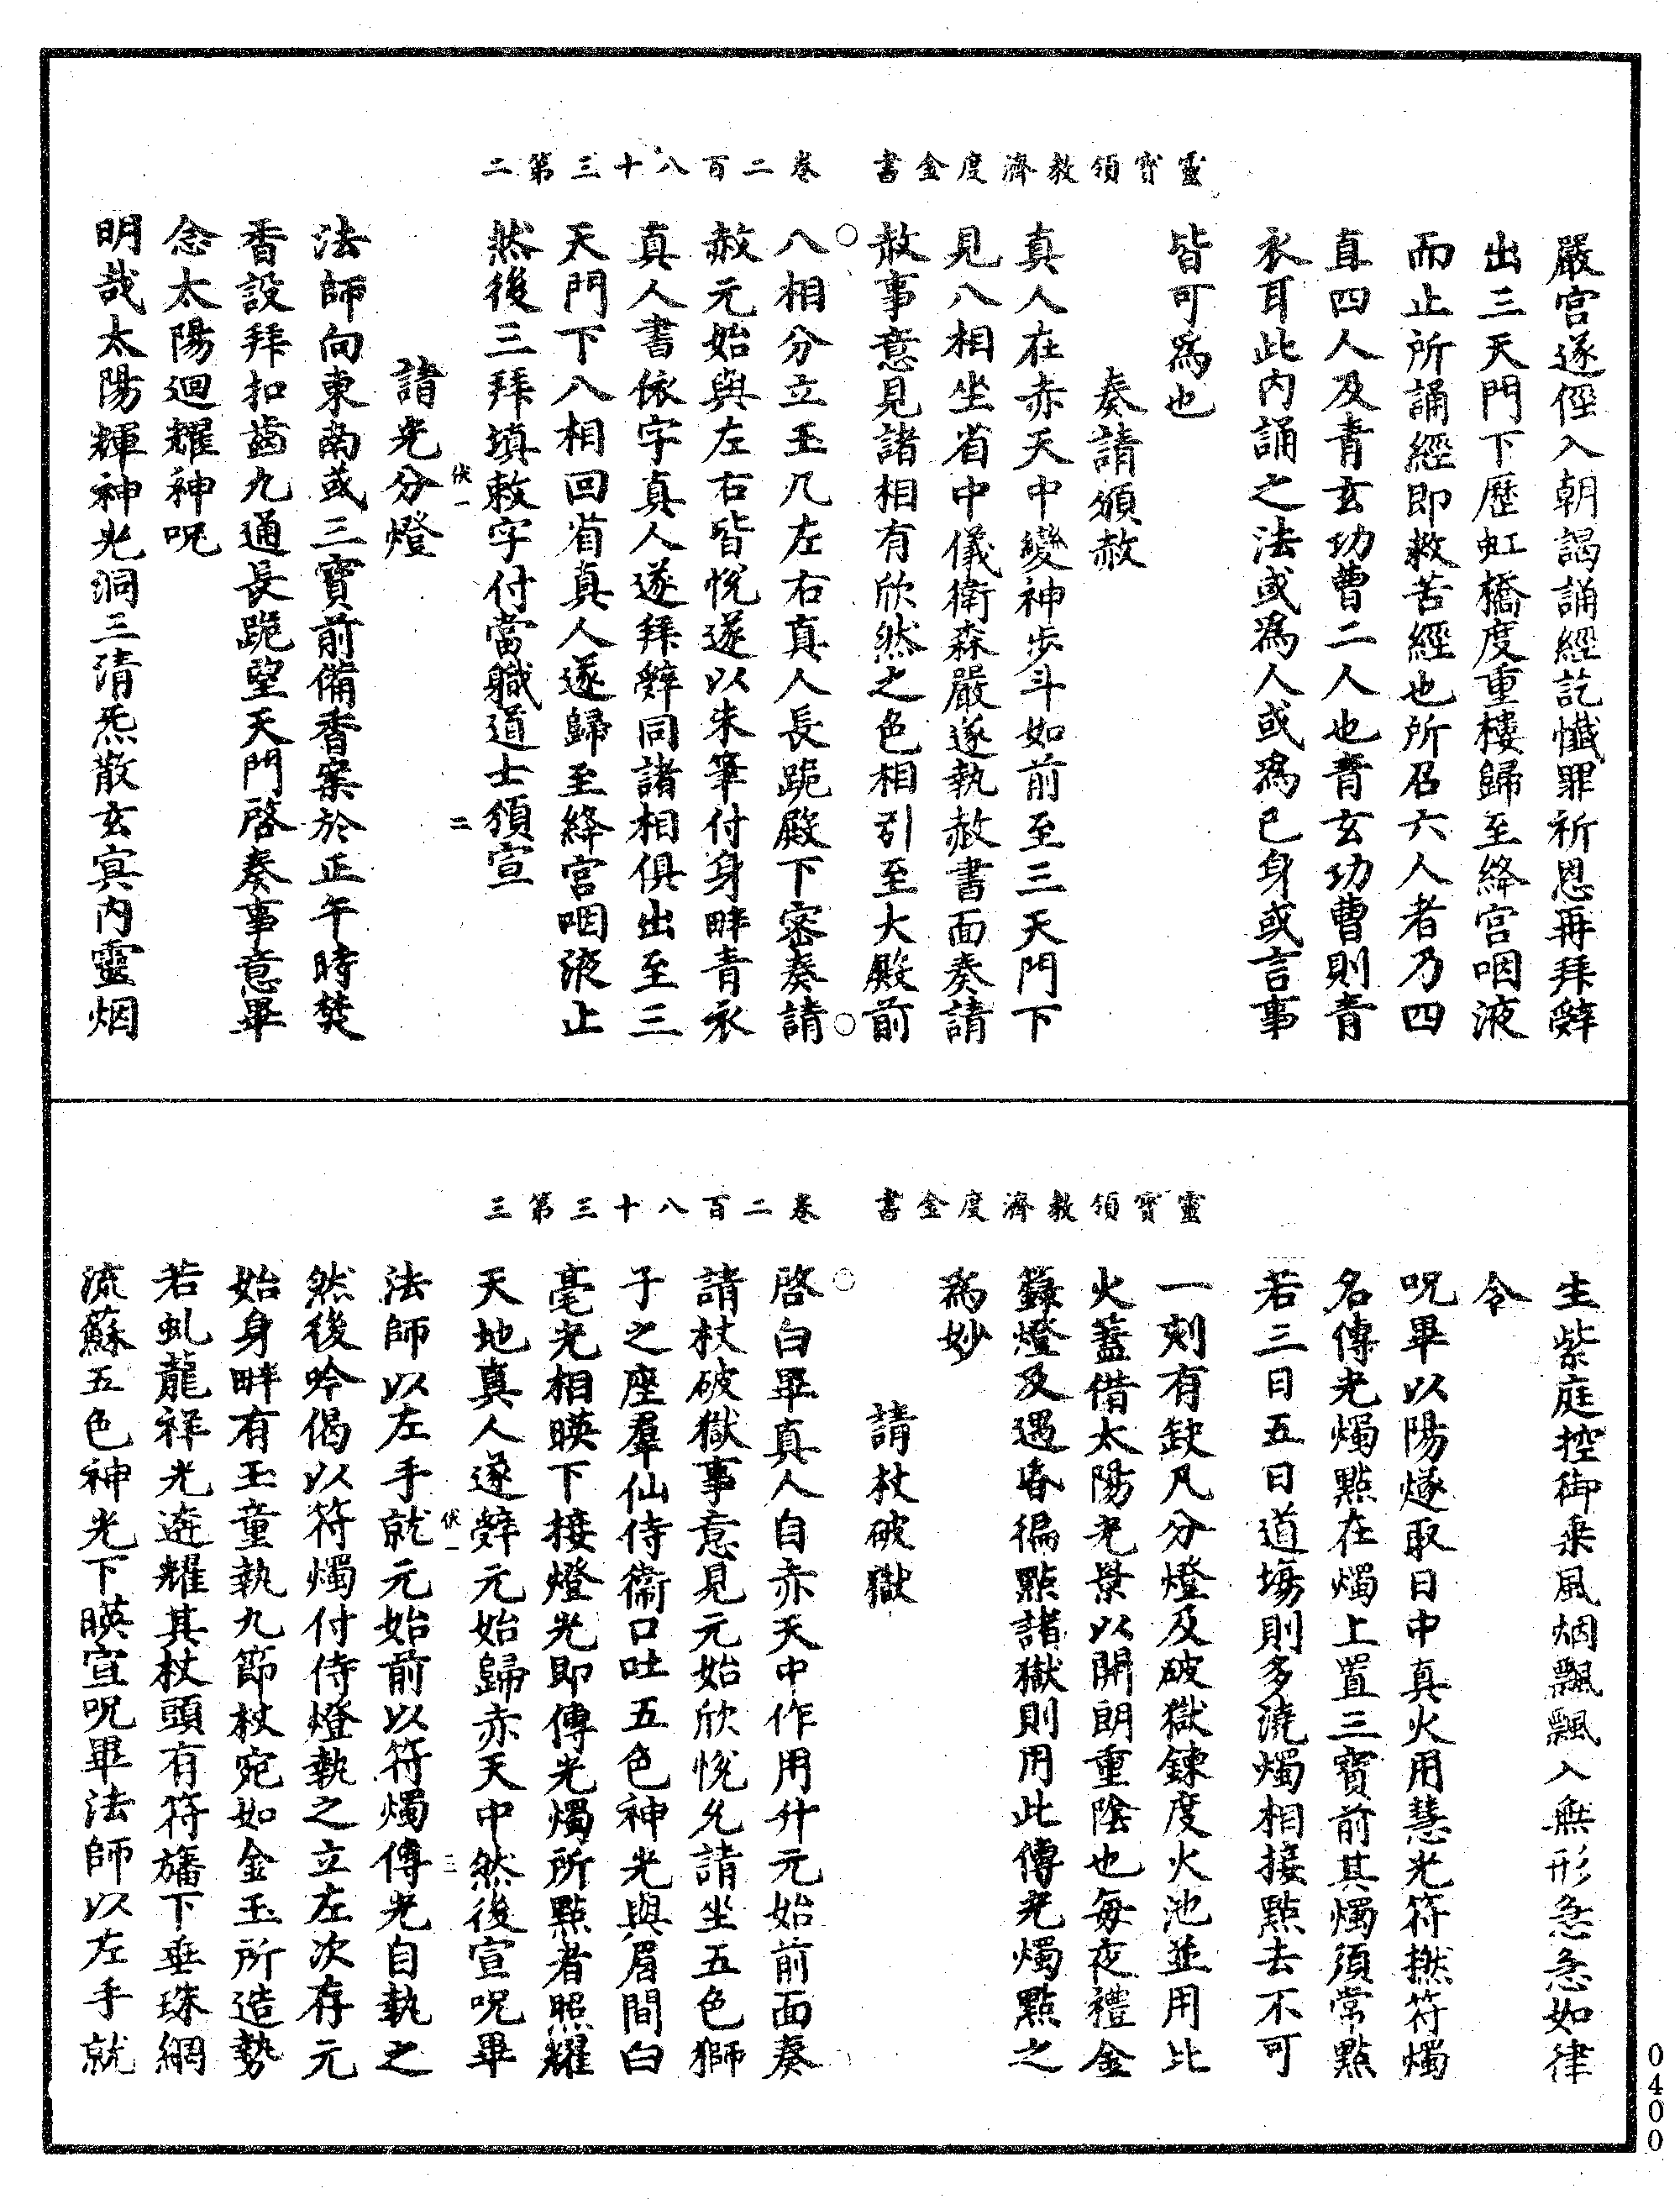 靈寶領教濟度金書　卷二百八十三第二
嚴宮遂俓入朝謁誦經訖懺罪祈恩再拜辤
出三天門下歷虹橋度重樓歸至絳宮咽液
而止所誦經即救苦經也所召六人者乃四
直四人及青玄功曹二人也青玄功曹則青
衣耳此内誦之法或為人或為己身或言事
皆可為也
奏請頒赦
真人在赤天中變神步斗如前至三天門下
見八相坐省中儀衛森嚴遂執赦書面奏請
赦事意見諸相有欣然之色相引至大殿前
八相分立玉几左右真人長跪殿下密奏請
赦元始與左右皆悅遂以朱筆付身畔青衣
真人書依字真人遂拜辤同諸相俱出至三
天門下八相回省真人遂歸至絳宮咽液止
然後三拜填敕字付當職道士頒宣
伏一　二
請光分燈
法師向東南或三寶前備香案於正午時焚
香設拜扣齒九通長跪望天門啓奏事意畢
念太陽迴耀神呪
明哉太陽輝神光洞三清炁散玄冥内靈烟
靈寶領教濟度金書　卷二百八十三第三
生紫庭控御乗風烟飄飄入無形急急如律
令
呪畢以陽燧取日中真火用慧光符撚符燭
名傳光燭點在燭上置三寶前其燭須常點
若三日五日道塲則多澆燭相接點去不可
一刻有缺凡分燈及破獄鍊度火池並用比
火蓋借太陽光景以開朗重陰也每夜禮金
籙燈及遇昏徧點諸獄則用此傳光燭點之
為妙
請杖破獄
啓白畢真人自赤天中作用升元始前面奏
請杖破獄事意見元始欣悅允請坐五色獅
子之座羣仙侍衞口吐五色神光與眉間白
毫光相暎下接燈光即傳光燭所點者照耀
天地真人遂辤元始歸赤天中然後宣呪畢
伏一　三
法師以左手就元始前以符燭傳光自執之
然後吟偈以符燭付侍燈執之立左次存元
始身畔有玉童執九節杖宛如金玉所造勢
若虬龍祥光遶耀其杖頭有符旛下垂珠網
流蘇五色神光下暎宣呪畢法師以左手就
0400